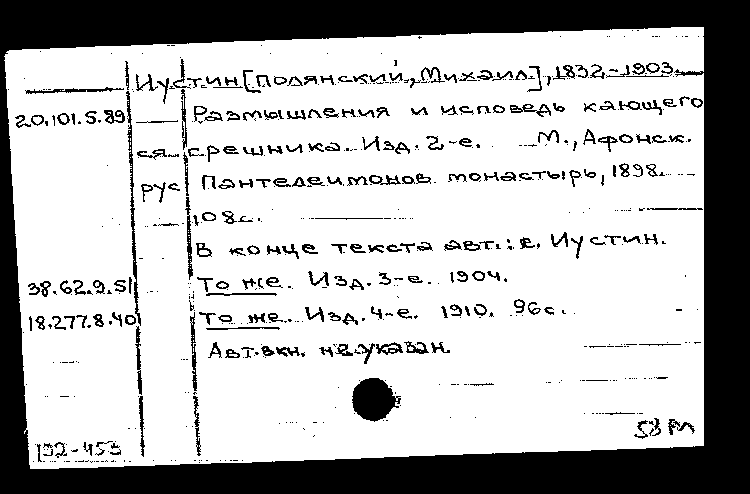 Иустин [Полянский, Михаил], 1832-1903.
20.101.5.89 Размышления и исповедь кающего
ся грешника. Изд. 2-е. М., Афонск.
рус Пантелеимонов монастырь, 1898.
108с.
В конце текста авт.: е. Иустин.
38.62.9.51 То же. Изд. 3-е. 1904.
18.277.8.40 То же. Изд. 4-е. 1910. 96с.
Авт. в кн. не указан.
132-453